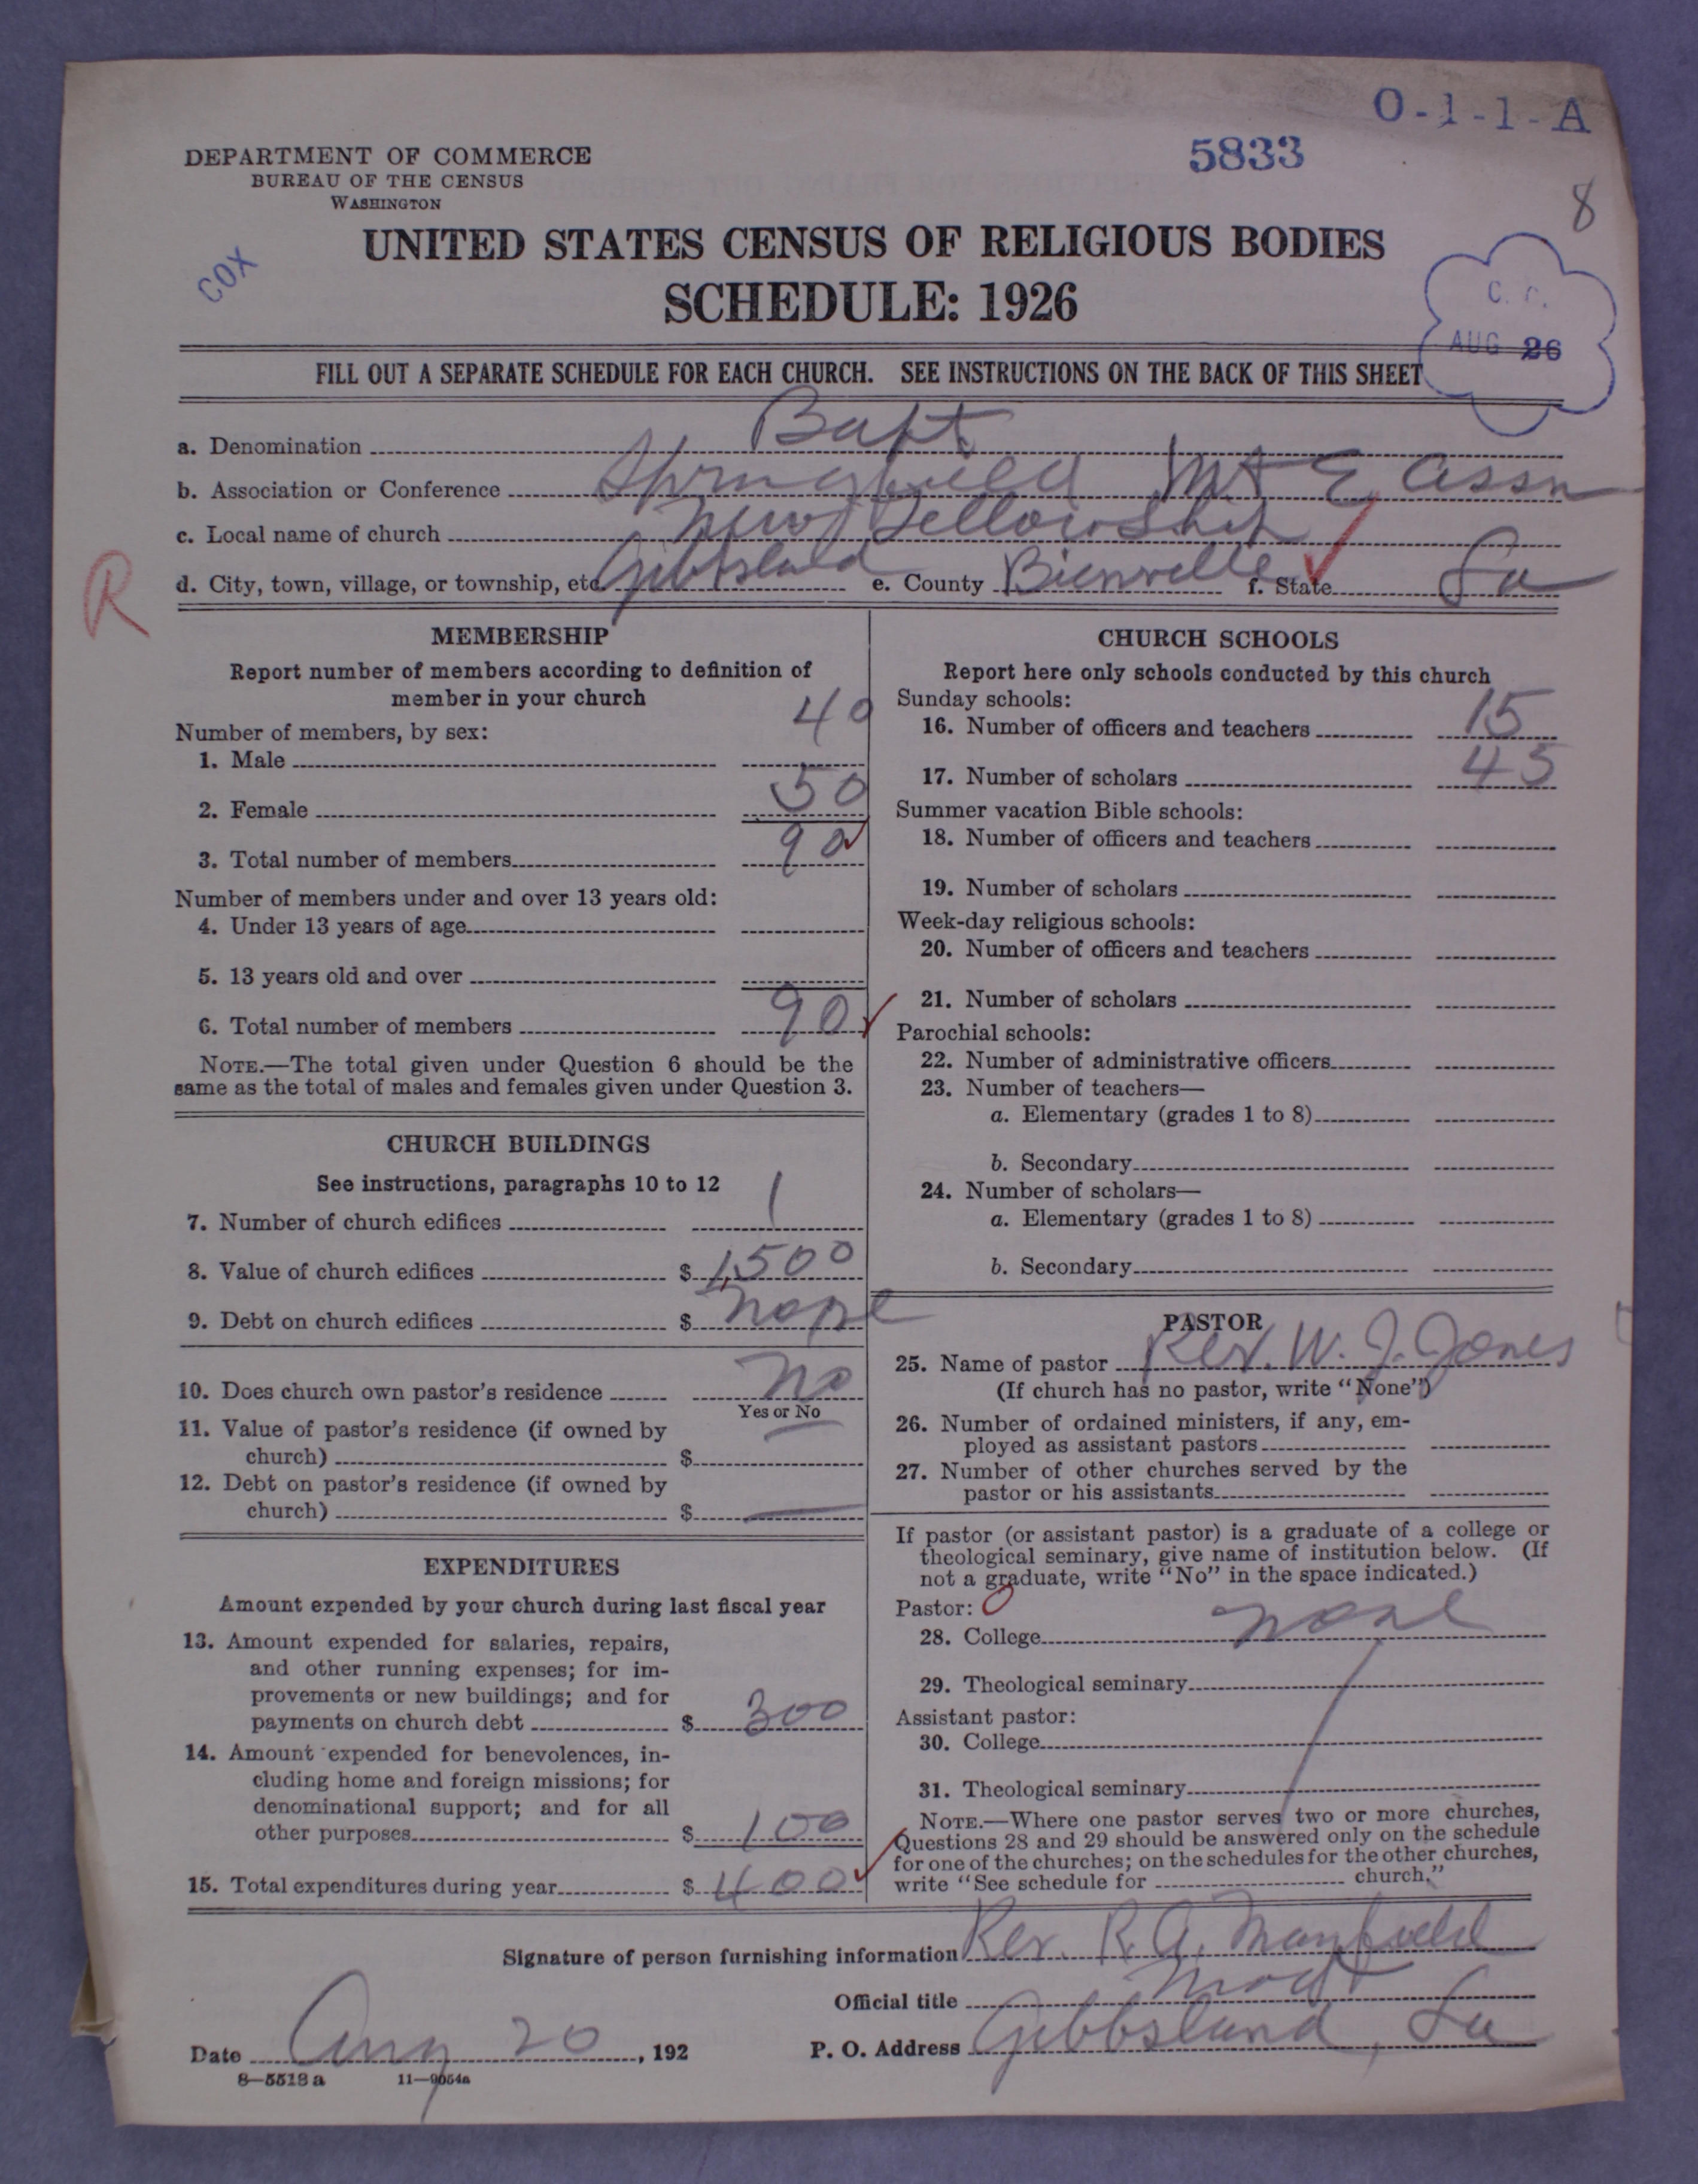 O-1-1-A
5833
8
DEPARTMENT OF COMMERCE
BUREAU OF THE CENSUS
WASHINGTON
COX
UNITED STATES CENSUS OF RELIGIOUS BODIES
SCHEDULE: 1926
AUG 26
FILL OUT A SEPARATE SCHEDULE FOR EACH CHURCH. SEE INSTRUCTIONS ON THE BACK OF THIS SHEET
a. Denomination Bapt
b. Association or Conference Springfield Mt E Assn
c. Local name of church New Fellowship
R
d. City, town, village, or township, etc. Gibbsland e. County Bienville f. State La
MEMBERSHIP
Report number of members according to definition of
member in your church
Number of members, by sex:
1. Male 40
2. Female 50
3. Total number of members 90
Number of members under and over 13 years old:
4. Under 13 years of age
5. 13 years old and over
6. Total number of members 90
NOTE.—The total given under Question 6 should be the
same as the total of males and females given under Question 3.
CHURCH BUILDINGS
See instructions, paragraphs 10 to 12
7. Number of church edifices 1
8. Value of church edifices $ 1,500
9. Debt on church edifices $ none
10. Does church own pastor's residence no
Yes or No
11. Value of pastor's residence (if owned by
church) $
12. Debt on pastor's residence (if owned by
church) $ —
EXPENDITURES
Amount expended by your church during last fiscal year
13. Amount expended for salaries, repairs,
and other running expenses; for im-
provements or new buildings; and for
payments on church debt $ 300
14. Amount expended for benevolences, in-
cluding home and foreign missions; for
denominational support; and for all
other purposes $ 100
15. Total expenditures during year $ 400
CHURCH SCHOOLS
Report here only schools conducted by this church
Sunday schools:
16. Number of officers and teachers 15
17. Number of scholars 45
Summer vacation Bible schools:
18. Number of officers and teachers
19. Number of scholars
Week-day religious schools:
20. Number of officers and teachers
21. Number of scholars
Parochial schools:
22. Number of administrative officers
23. Number of teachers—
a. Elementary (grades 1 to 8)
b. Secondary
24. Number of scholars—
a. Elementary (grades 1 to 8)
b. Secondary
PASTOR
25. Name of pastor Rev. W. J. Jones
(If church has no pastor, write "None")
26. Number of ordained ministers, if any, em-
ployed as assistant pastors
27. Number of other churches served by the
pastor or his assistants
If pastor (or assistant pastor) is a graduate of a college or
theological seminary, give name of institution below. (If
not a graduate, write "No" in the space indicated.)
Pastor: 0
28. College none
29. Theological seminary
Assistant pastor:
30. College
31. Theological seminary
NOTE.—Where one pastor serves two or more churches,
Questions 28 and 29 should be answered only on the schedule
for one of the churches; on the schedules for the other churches,
write "See schedule for church."
Signature of person furnishing information Rev. R. A. Manfield
Official title Mod
Date Aug 20, 192 P. O. Address Gibbsland, La
8—5518 a 11—9054a